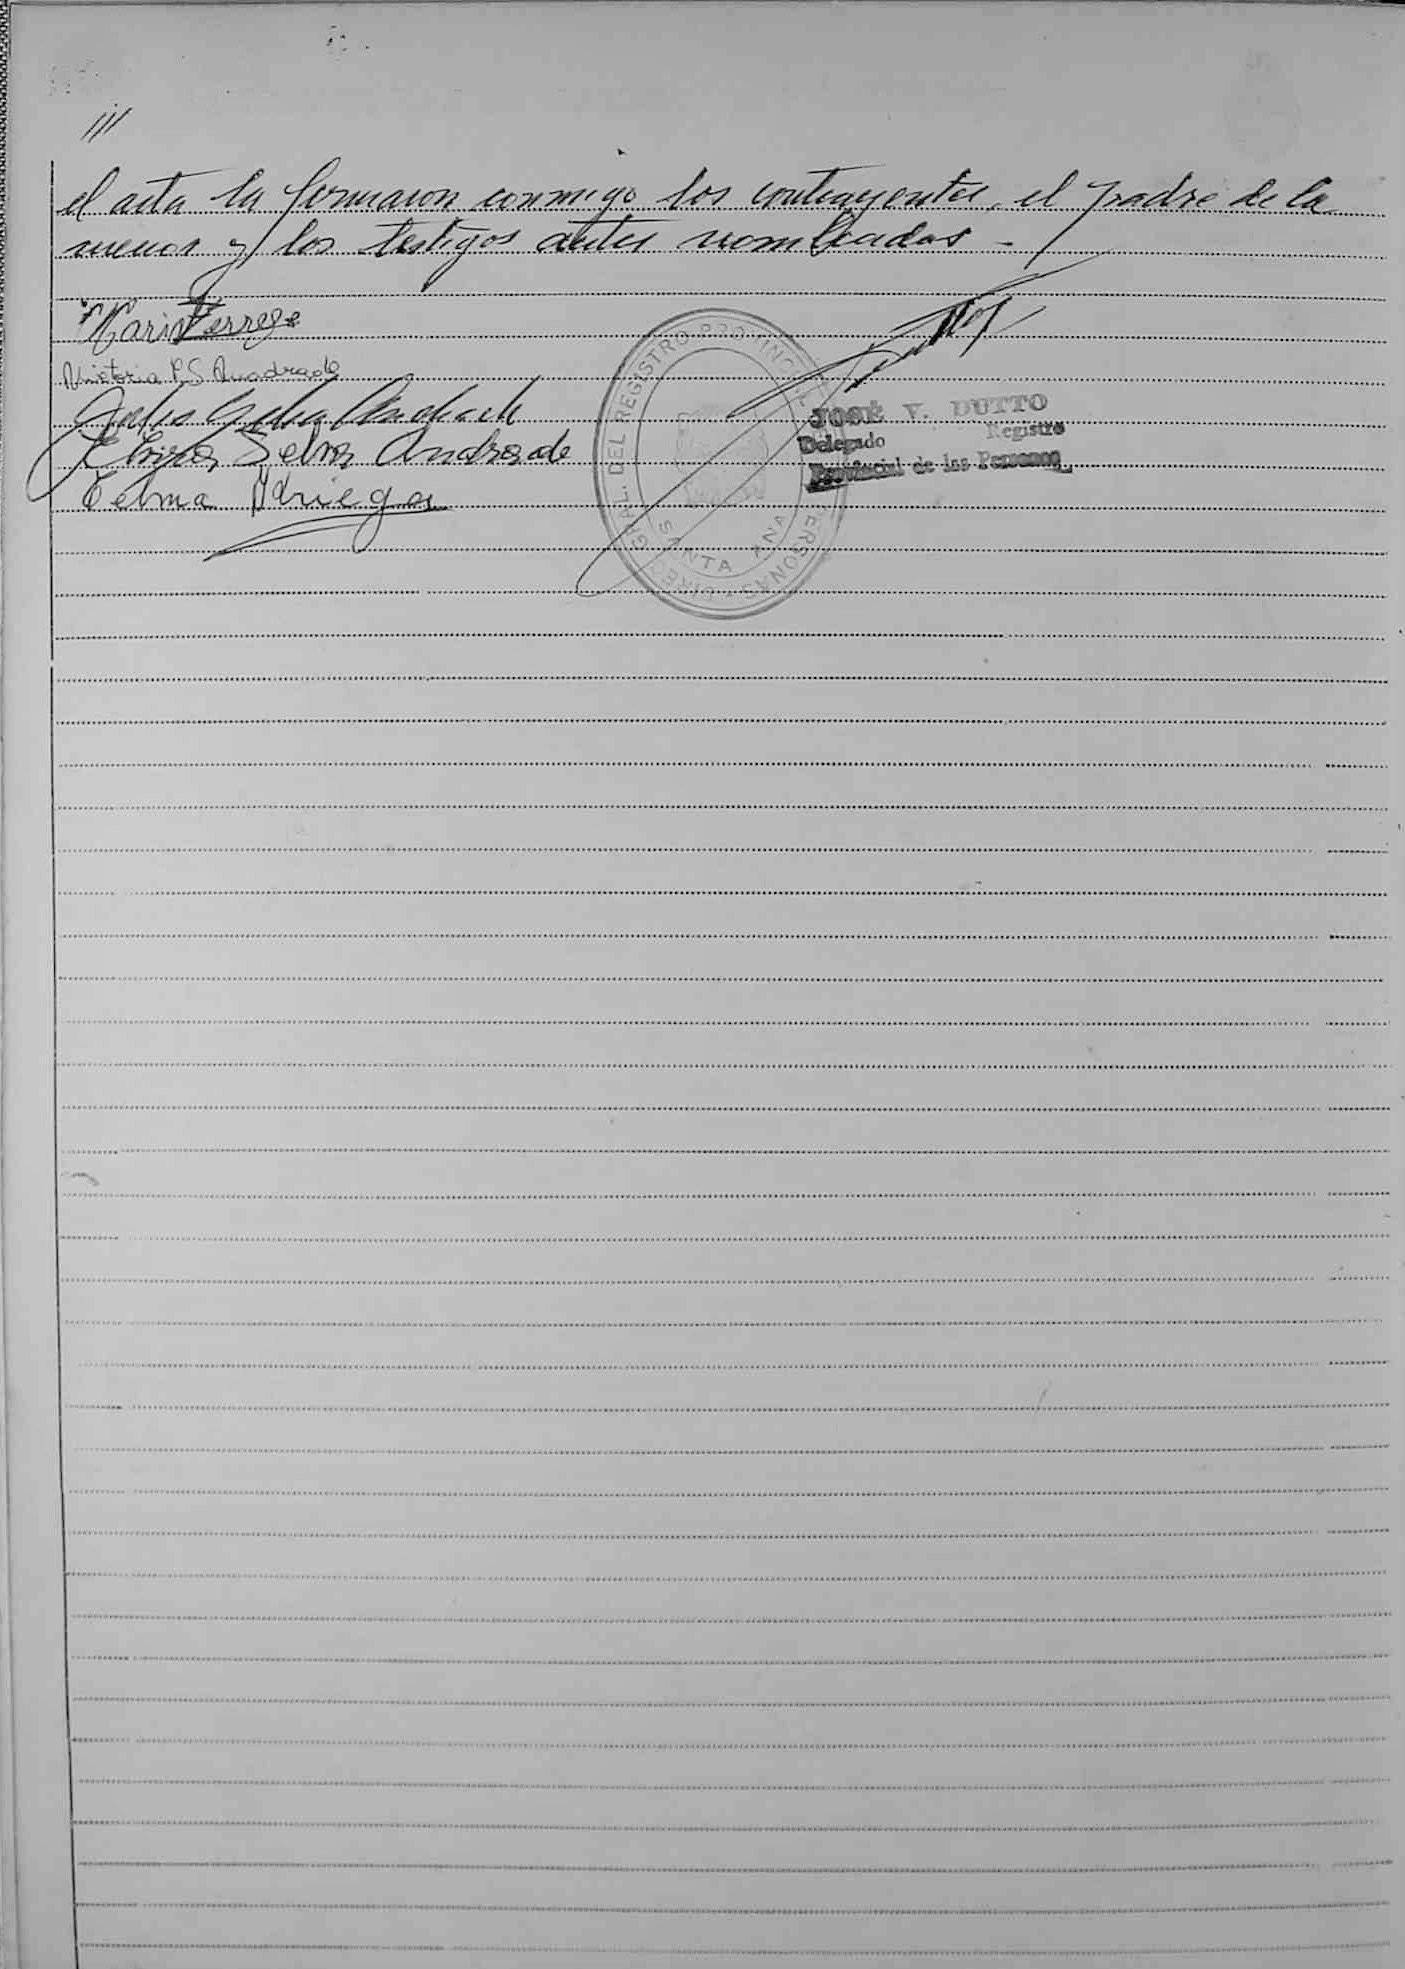 ///
el acta la firmaron conmigo los contrayentes, el padre de la
menor y los testigos antes nombrados -
Victoria P. S. Andrade
Selva Andrade
Telma Noriega
DIREC. GRAL. DEL REGISTRO PROVINCIAL PERSONAS
SANTA ANA
JOSÉ V. DUTTO
Delegado Registro
Provincial de las Personas